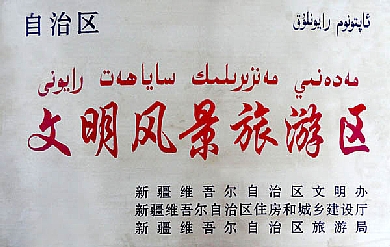 自治区 ئاپتونوم رايونلۇق
مەدەنىي مەنزىرىلىك ساياھەت رايونى
文明风景旅游区
新疆维吾尔自治区文明办
新疆维吾尔自治区住房和城乡建设厅
新疆维吾尔自治区旅游局